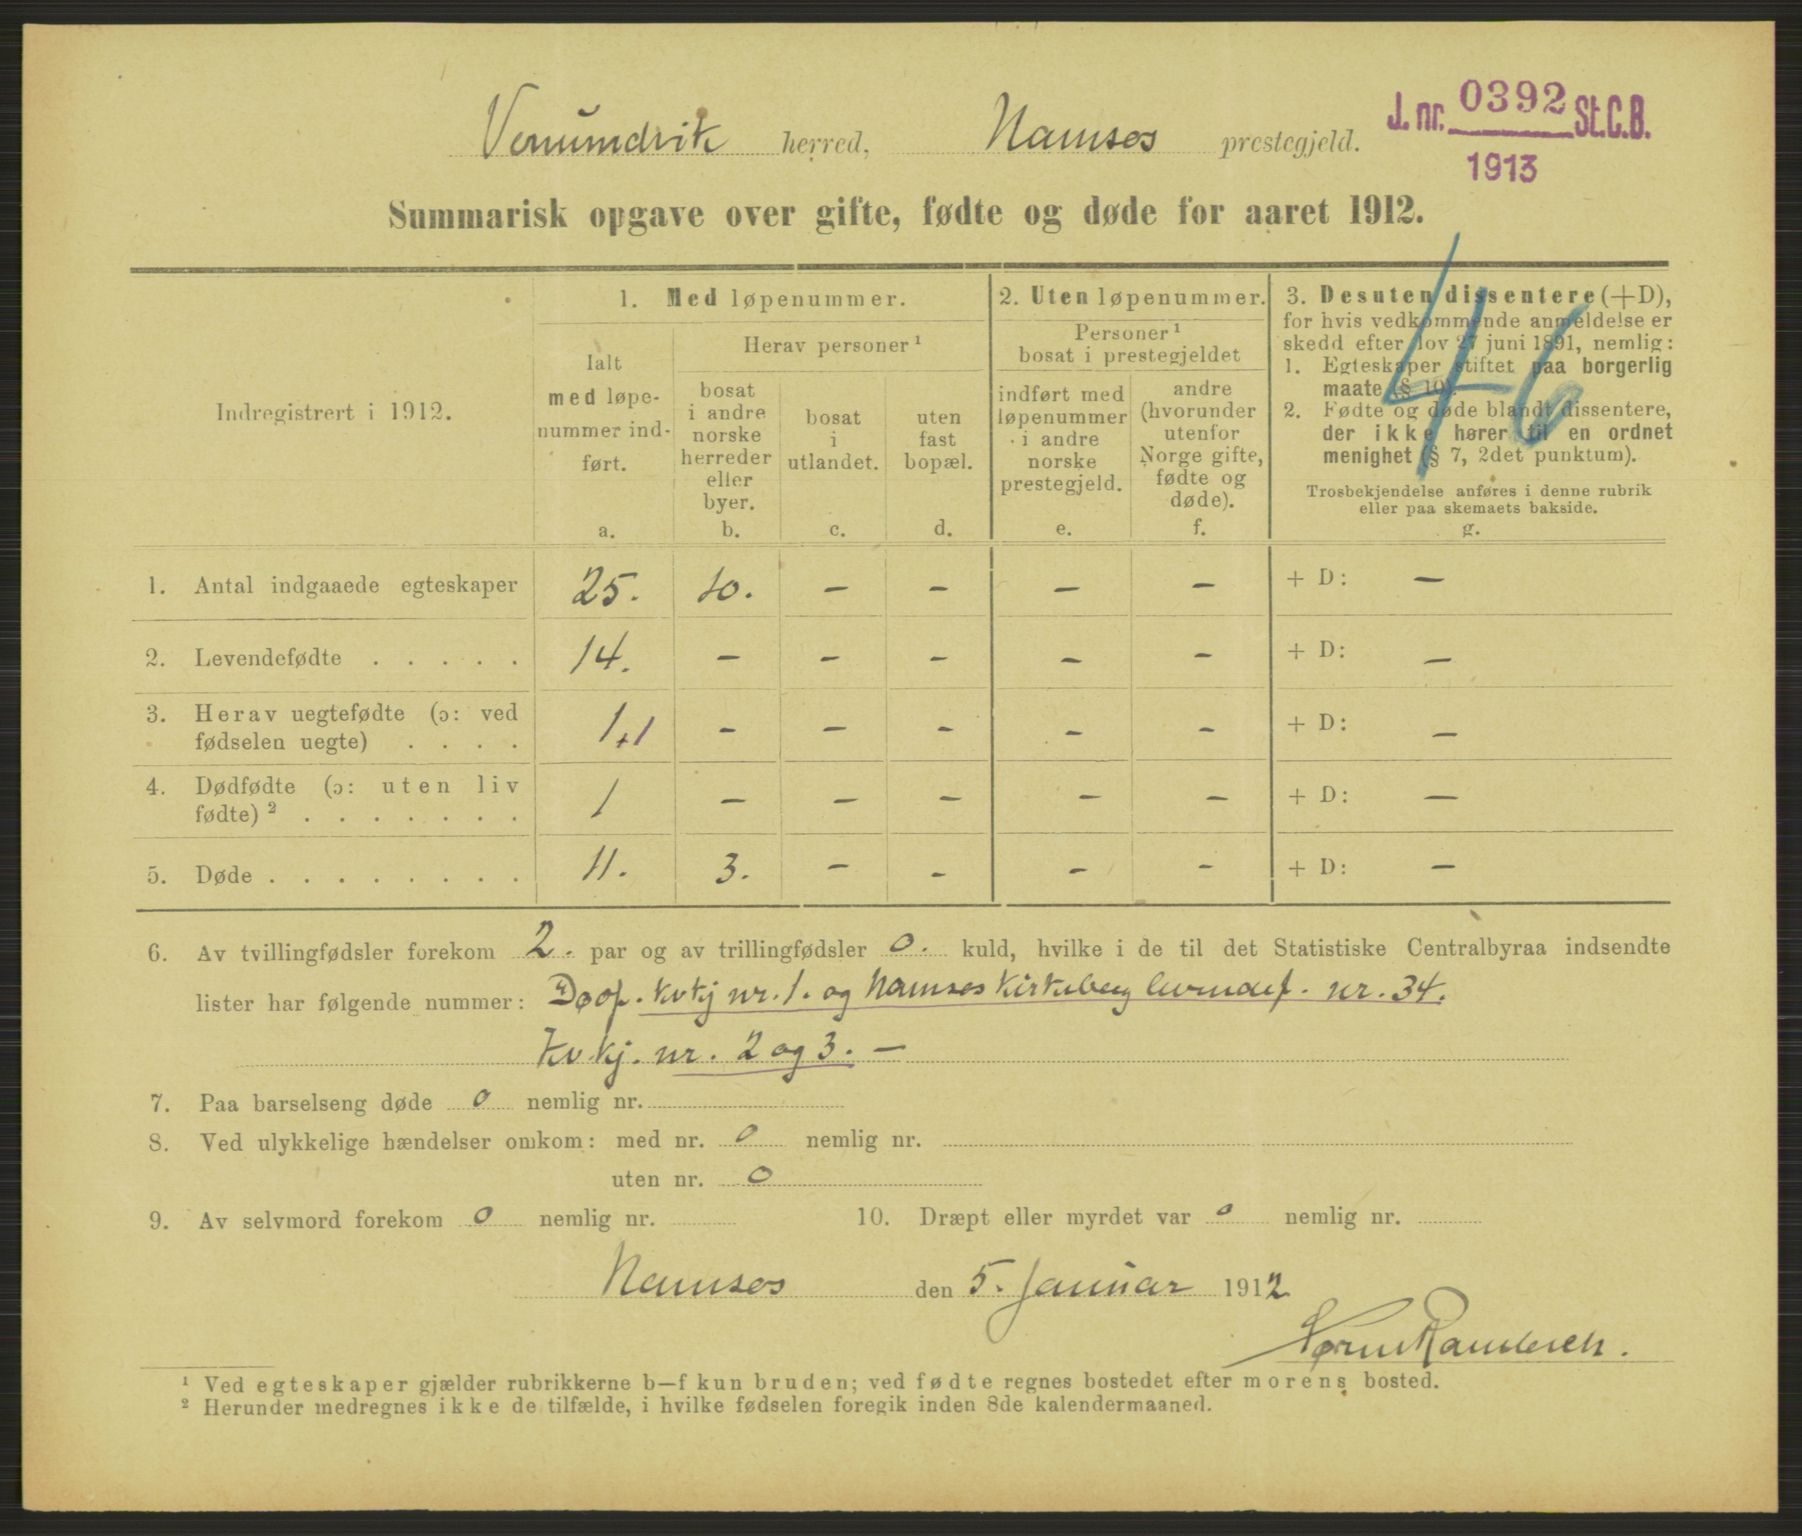 Vemundvik herred, Namsos prestegjeld.
J. nr. 0392 St.C.B.
1913
Summarisk opgave over gifte, fødte og døde for aaret 1912.
46
Indregistrert i 1912.
1. Med løpenummer.
Ialt
med løpe-
nummer ind-
ført.
a.
Herav personer ¹
bosat
i andre
norske
herreder
eller
byer.
b.
bosat
i
utlandet.
c.
uten
fast
bopæl.
d.
2. Uten løpenummer.
Personer ¹
bosat i prestegjeldet
indført med
løpenummer
i andre
norske
prestegjeld.
e.
andre
(hvorunder
utenfor
Norge gifte,
fødte og
døde).
f.
3. Desuten dissentere (+D),
for hvis vedkommende anmeldelse er
skedd efter lov 27 juni 1891, nemlig:
1. Egteskaper stiftet paa borgerlig
maate (§ 10).
2. Fødte og døde blandt dissentere,
der ikke hører til en ordnet
menighet (§ 7, 2det punktum).
Trosbekjendelse anføres i denne rubrik
eller paa skemaets bakside.
g.
1. Antal indgaaede egteskaper 25. 10. – – – – + D: –
2. Levendefødte . . . . . 14. – – – – – + D: –
3. Herav uegtefødte (ɔ: ved
fødselen uegte) . . . . 1+1 – – – – – + D: –
4. Dødfødte (ɔ: uten liv
fødte) ² . . . . . . . 1 – – – – – + D: –
5. Døde . . . . . . . . 11. 3. – – – – + D: –
6. Av tvillingfødsler forekom 2. par og av trillingfødsler 0. kuld, hvilke i de til det Statistiske Centralbyraa indsendte
lister har følgende nummer: kvkj nr. 1. og Namsos kirkebog levendef. nr. 34.
kvkj. nr. 2 og 3. –
7. Paa barselseng døde 0 nemlig nr.
8. Ved ulykkelige hændelser omkom: med nr. 0 nemlig nr.
uten nr. 0
9. Av selvmord forekom 0 nemlig nr.
10. Dræpt eller myrdet var 0 nemlig nr.
Namsos den 5. Januar 1912
¹ Ved egteskaper gjælder rubrikkerne b—f kun bruden; ved fødte regnes bostedet efter morens bosted.
² Herunder medregnes ikke de tilfælde, i hvilke fødselen foregik inden 8de kalendermaaned.